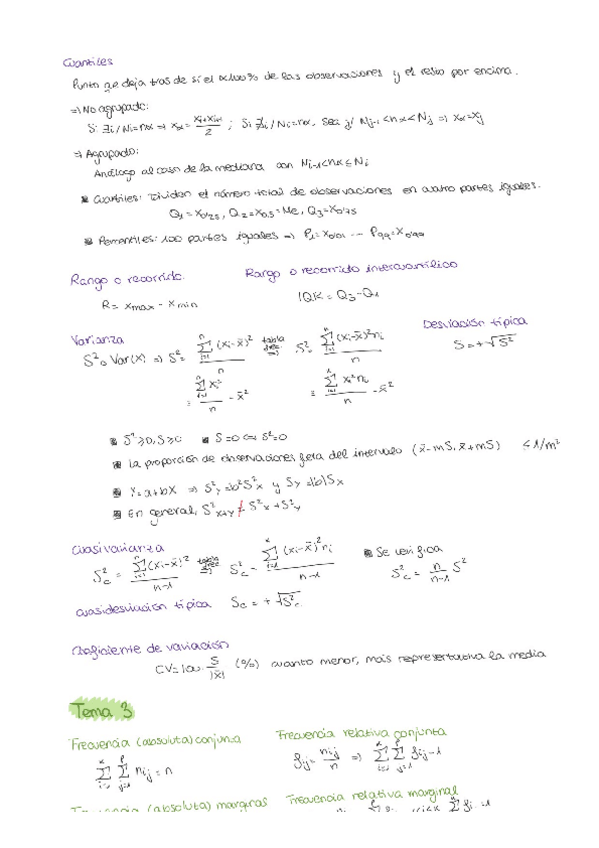 Cuantiles
Punto que deja tras de sí el α·100% de las observaciones y el resto por encima.
⇒ No agrupado:
Si ∃i / Ni=nα ⇒ xα = (xi+xi+1)/2 ; Si ∄i / Ni=nα, sea j / Nj-1<nα<Nj ⇒ xα=xj
⇒ Agrupado:
Análogo al caso de la mediana con Ni-1<nα≤Ni
Cuartiles: Dividen el número total de observaciones en cuatro partes iguales.
Q1=x0'25, Q2=x0.5=Me, Q3=x0'75
Percentiles: 100 partes iguales ⇒ P1=x0'01 ... P99=x0'99
Rango o recorrido
Rango o recorrido intercuartílico
R = xmax - xmin
IQR = Q3-Q1
Varianza
Desviación típica
S² o Var(X) ⇒ S² = Σ(xi-x̄)²/n tabla frec ⇒ S² = Σ(xi-x̄)²ni/n
S=+√S²
= Σxi²/n - x̄²
= Σxi²ni/n - x̄²
S²≥0, S≥0
S=0 ⇔ S²=0
La proporción de observaciones fuera del intervalo (x̄-mS, x̄+mS) ≤1/m²
Y=a+bX ⇒ S²Y=b²S²X y SY=|b|SX
En general, S²X+Y ≠ S²X+S²Y
Cuasivarianza
S²c = Σ(xi-x̄)²/(n-1) tabla frec ⇒ S²c = Σ(xi-x̄)²ni/(n-1)
Se verifica
S²c = n/(n-1) S²
Cuasidesviación típica Sc=+√S²c
Coeficiente de variación
CV=100·S/|x̄| (%) cuanto menor, más representativa la media
Tema 3
Frecuencia (absoluta) conjunta
Frecuencia relativa conjunta
Σ Σ nij = n
fij = nij/n ⇒ Σ Σ fij=1
Frecuencia (absoluta) marginas
Frecuencia relativa marginal